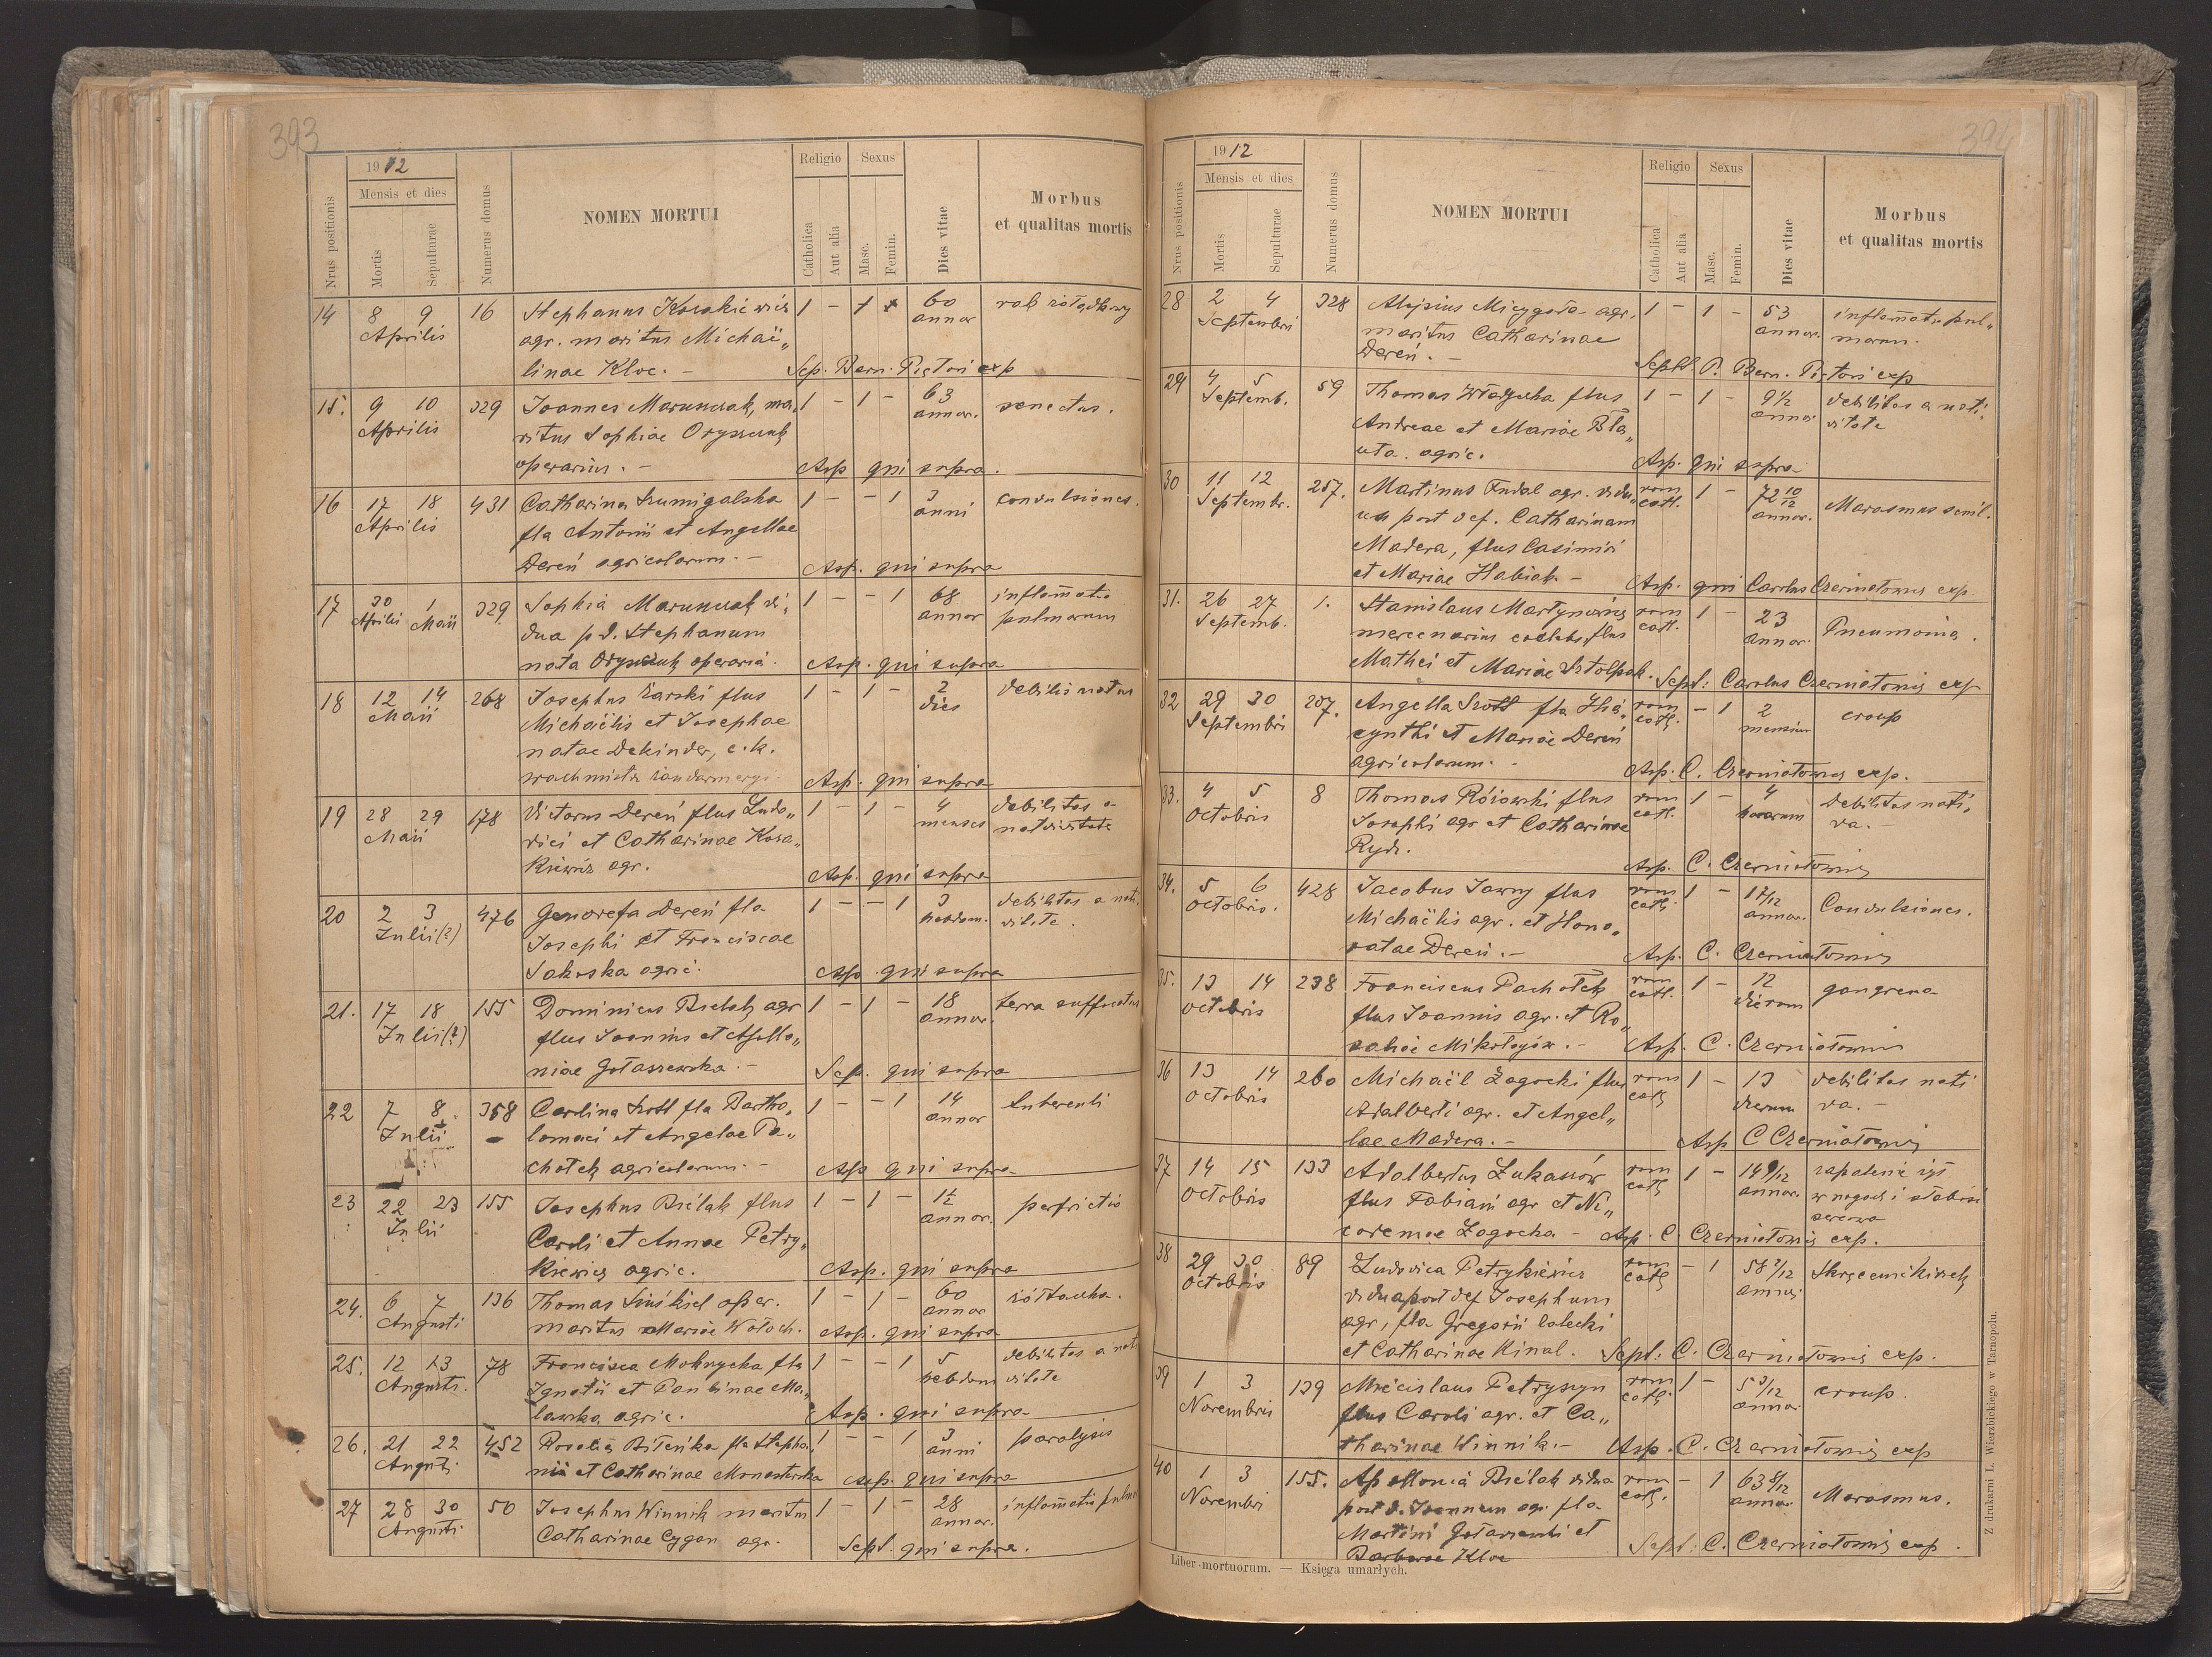 393
1912
Mensis et dies
Nrus positionis
Mortis
Sepulturae
Numerus domus
NOMEN MORTUI
Religio
Sexus
Catholica
Aut alia
Masc.
Femin.
Dies vitae
Morbus
et qualitas mortis
14 8 9 16 Stephanus Kosakiewicz 1 - 1 60 rak żołądkowy
Aprilis agr. maritus Michaë„ annor
linae Kloc. - Sep. Bern. Pięton exp
15. 9 10 329 Joannes Marunczak, ma„ 1 - 1 - 63 senectus.
Aprilis ritus Sophiae Oryszczuk annor.
operarius. - Asp qui supra.
16 17 18 431 Catharina Szumigalska 1 - - 1 3 convulsiones.
Aprilis fla Antonii et Angellae anni
Dereń agricolarum. - Asp. qui supra
17 30 1 329 Sophia Marunczak vi„ 1 - - 1 68 inflamatio
Aprilis Maii dua p d. Stephanum annor pulmonum
nata Oryszczuk operaria. Asp. qui supra
18 12 14 268 Josephus Żarski flus 1 - 1 - 2 debilis natus
Maii Michaëlis et Josephae dies
natae Dekinder, c. k.
wachmistrz żandarmeryi. Asp. qui supra
19 28 29 178 Victorus Dereń flus Ludo„ 1 - 1 - 4 debilitas a
Maii vici et Catharinae Kosa„ menses nativitate
kiewicz agr. Asp. qui supra
20 2 3 476 Genovefa Dereń fla 1 - - 1 3 debilitas a nati„
Julii (?) Josephi et Franciscae hebdom. vitate.
Sakaska agric. Asp. qui supra
21. 17 18 155 Dominicus Bielak agr 1 - 1 - 18 terra suffocatus
Julii (?) flus Joannis et Apollo„ annor.
niae Gołaszewska. - Sep. qui supra
22 7 8. 358 Carolina Szott fla Bartho„ 1 - - 1 14 tuberculi
Julii lomaei et Angelae Pa„ annor
chołek agricolarum. - Asp qui supra
23 22 23 155 Josephus Bielak flus 1 - 1 - 1½ perfrictio
Julii Caroli et Annae Petry„ annor.
kiewicz agric. Asp. qui supra
24. 6 7 136 Thomas oper. 1 - 1 - 60 żółtaczka.
Augusti maritus Mariae Wołoch. annor
Asp. qui supra
25. 12 13 78 Francisca Mokrzycka fla 1 - - 1 5 debilitas a nati
Augusti. Ignatii et Paulinae Ma„ hebdom vitate
lawska agric. Asp. qui supra
26. 21 22 452 Rosalia Bileńka fla Stepha„ 1 - - 1 3 paralysis
Augusti nii et Catharinae Monasterska anni
Asp. qui supra
27 28 30 50 Josephus Winnik maritus 1 - 1 - 28 inflamatio pulmo
Augusti Catharinae Cygan agr. annor.
Sept. qui supra.
394
1912
Mensis et dies
Nrus positionis
Mortis
Sepulturae
Numerus domus
NOMEN MORTUI
Religio
Sexus
Catholica
Aut alia
Masc.
Femin.
Dies vitae
Morbus
et qualitas mortis
28 2 4 328 Alojsius Micygała agr. 1 - 1 - 53 inflamatio pul„
Septembri maritus Catharinae annor. monum.
Dereń. - Sept. P. Bern. Pięton exp
29 4 5 59 Thomas flus 1 - 1 - 9½ debilitas a nati„
Septemb. Andreae et Mariae Bła„ annor vitate
uta. agric. Asp. qui supra
30 11 12 257. Martinus Fudal agr. vidu„ rom cath. 1 - 72 10/12 Marasmus senil.
Septembr. us post def. Catharinam annor.
Madera, flus Casimiri
et Mariae Habiak. - Asp. qui Carolus Czerniatowicz exp.
31. 26 27 1. Stanislaus Martynowicz rom cath. 1 - 23 Pneumonia.
Septemb. mercenarius coelebs, flus annor.
Mathei et Mariae Ostolpak. Sept: Carolus Czerniatowicz exp
32 29 30 207. Angella Szott fla Hia„ rom cath. - 1 2 croup
Septembri cynthi et Mariae Dereń mensium
agricolarum. - Asp. C. Czerniatowicz exp.
33. 4 5 8 Thomas Róiowski flus rom cath. 1 - 4 Debilitas nati„
Octobris Josephi agr et Catharinae horarum va. -
Rydz. Asp. C. Czerniatowicz
34. 5 6 428 Jacobus Jawny flus rom cath. 1 - 1 7/12 Convulsiones.
Octobris. Michaëlis agr. et Hono„ annor.
ratae Dereń. - Asp. C. Czerniatowicz
35. 13 14 238 Franciscus Pachołek rom cath. 1 - 12 gangrena
Octobris flus Joannis agr. et Ro„ dierum
saliae Mikołajów. - Asp. C. Czerniatowicz
36 13 14 260 Michaël Zagocki flus rom cath 1 - 13 debilitas nati
Octobris Adalberti agr. et Angel„ dierum va. -
lae Madera. - Asp C Czerniatowicz
37 14 15 133 Adalbertus Łukasiów rom cath 1 - 14 9/12 zapalenie żył
Octobris flus Fabiani agr et Ni„ annor. w nogach i słabość
codemae Zagocka - Asp. C. Czerniatowicz exp. serca
38 29 30 89 Ludovica Petrykiewicz rom cath - 1 58 2/12 Skręcenie kiszek
Octobris vidua post def Josephum annor.
agr, fla Gregorii Calecki
et Catharinae Kinal. Sept: C. Czerniatowicz exp.
39 1 3 139 Miecislaus Petryszyn rom cath. 1 - 5 3/12 croup.
Novembris flus Caroli agr. et Ca„ annor
tharinae Winnik. - Asp. C. Czerniatowicz exp
40 1 3 155. Apollonia Bielak vidua rom cath. - 1 63 8/12 Marasmus.
Novembri post d. Joannem agr. fla annor.
Martini Gołaszewski et
Barbarae Kloc Sept: C. Czerniatowicz exp.
Liber mortuorum. — Księga umarłych.
Z drukarni L. Wierzbickiego w Tarnopolu.